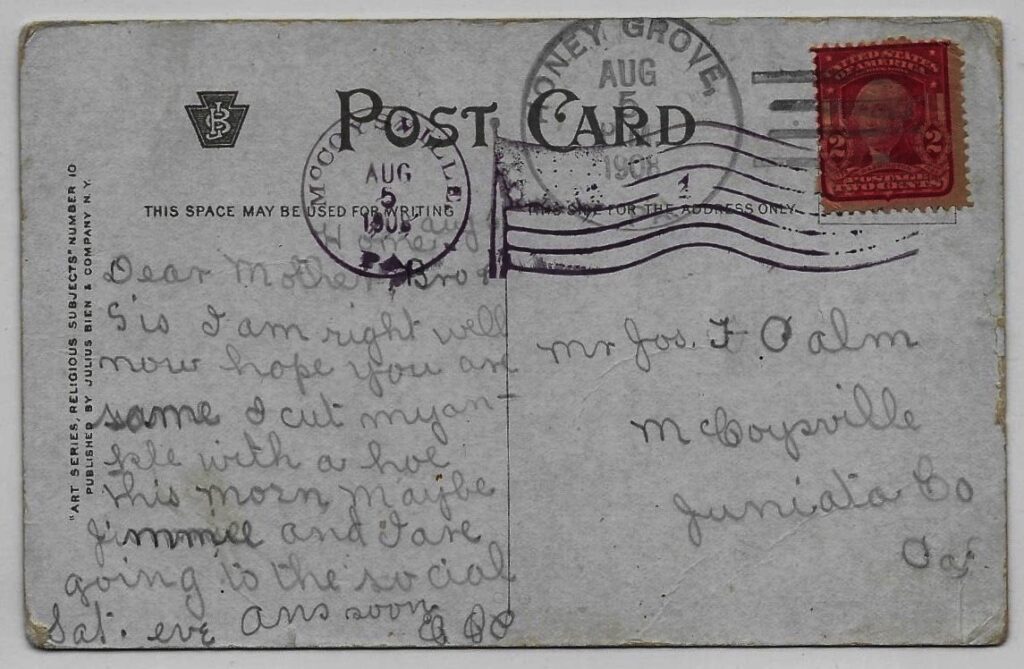 HONEY GROVE,
AUG
5
1908
UNITED STATES
OF AMERICA
2 2
TWO CENTS
JB
POST CARD
McCOYSVILLE
AUG
5
1908
1
THIS SPACE MAY BE USED FOR WRITING
THIS SIDE FOR THE ADDRESS ONLY
"ART SERIES, RELIGIOUS SUBJECTS" NUMBER 10
PUBLISHED BY JULIUS BIEN & COMPANY N.Y.
Home, Aug
Dear Mother Bro &
Sis I am right well
now hope you are
same I cut my an-
kle with a hoe
this morn Maybe
Jimmee and I are
going to the social
Sat. eve ans soon
Mr Jos. F Palm
McCoysville
Juniata Co
Pa.